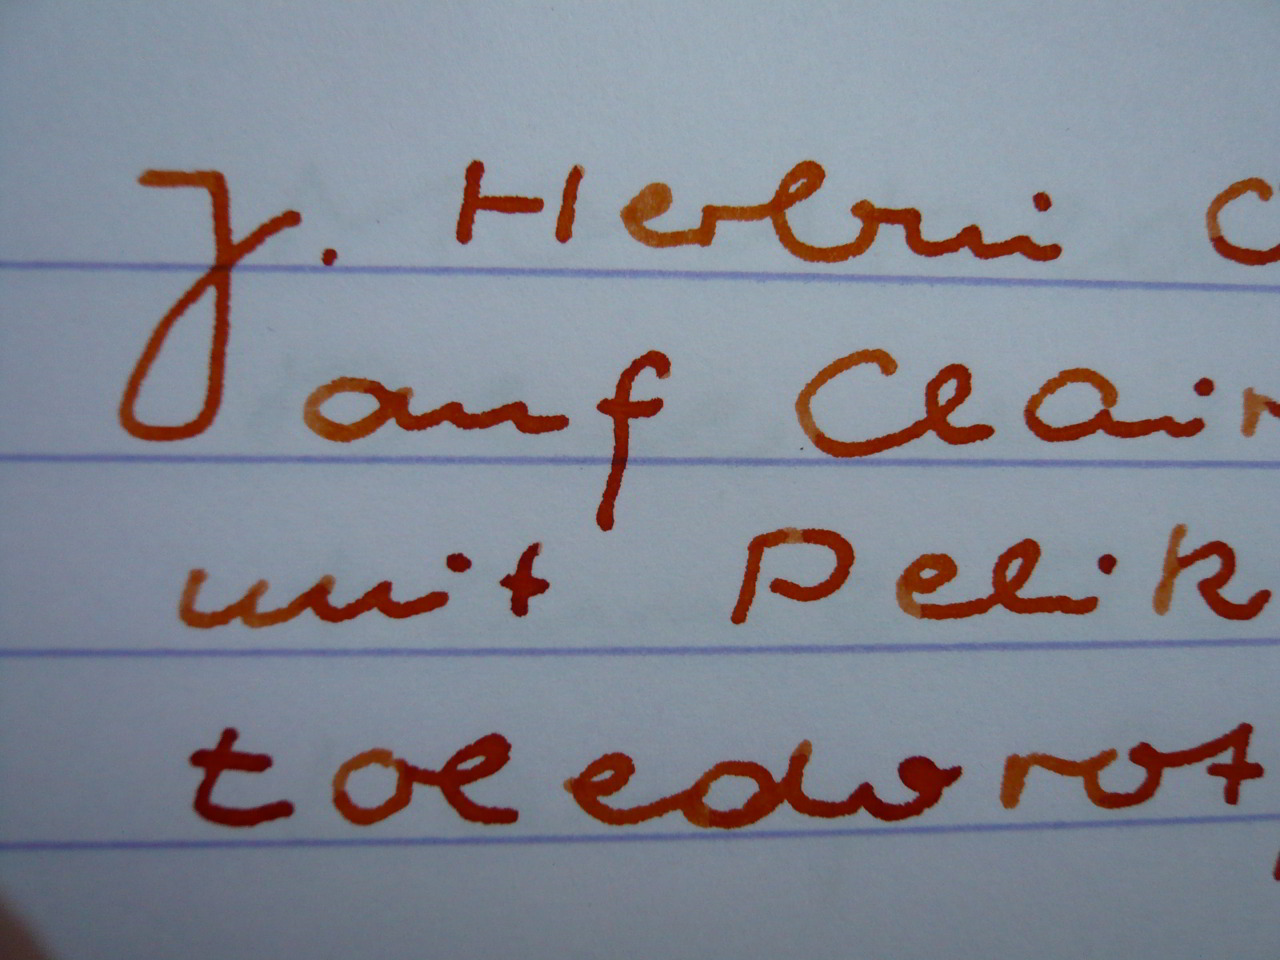 J. Herbin C
auf Clair
mit Pelik
toledo rot